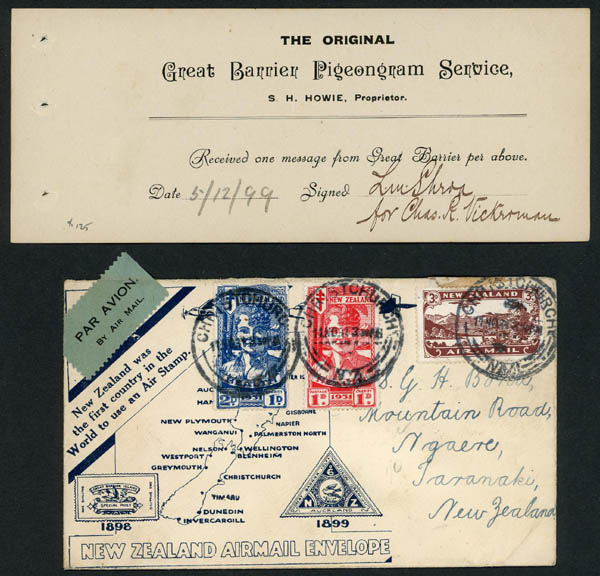 THE ORIGINAL
Great Barrier Pigeongram Service,
S. H. HOWIE, Proprietor.
Received one message from Great Barrier per above.
Date 5/12/99 Signed
for Chas. R.
125
PAR AVION.
BY AIR MAIL.
New Zealand was
the first country in the
World to use an Air Stamp.
CHRISTCHURCH
N.Z.
2D 1931 1D
NEW ZEALAND
CHRISTCHURCH
N.Z.
1D 1931 1D
3D NEW ZEALAND 3D
AIR MAIL
CHRISTCHURCH
N.Z.
GISBORNE
NEW PLYMOUTH NAPIER
WANGANUI PALMERSTON NORTH
NELSON WELLINGTON
WESTPORT BLENHEIM
GREYMOUTH
CHRISTCHURCH
TIMARU
DUNEDIN
INVERCARGILL
GREAT BARRIER ISLAND
SPECIAL POST
1898
N Z
AUCKLAND
1899
NEW ZEALAND AIRMAIL ENVELOPE
G. H.
Mountain Road,
Ngaere,
Taranaki,
New Zealand